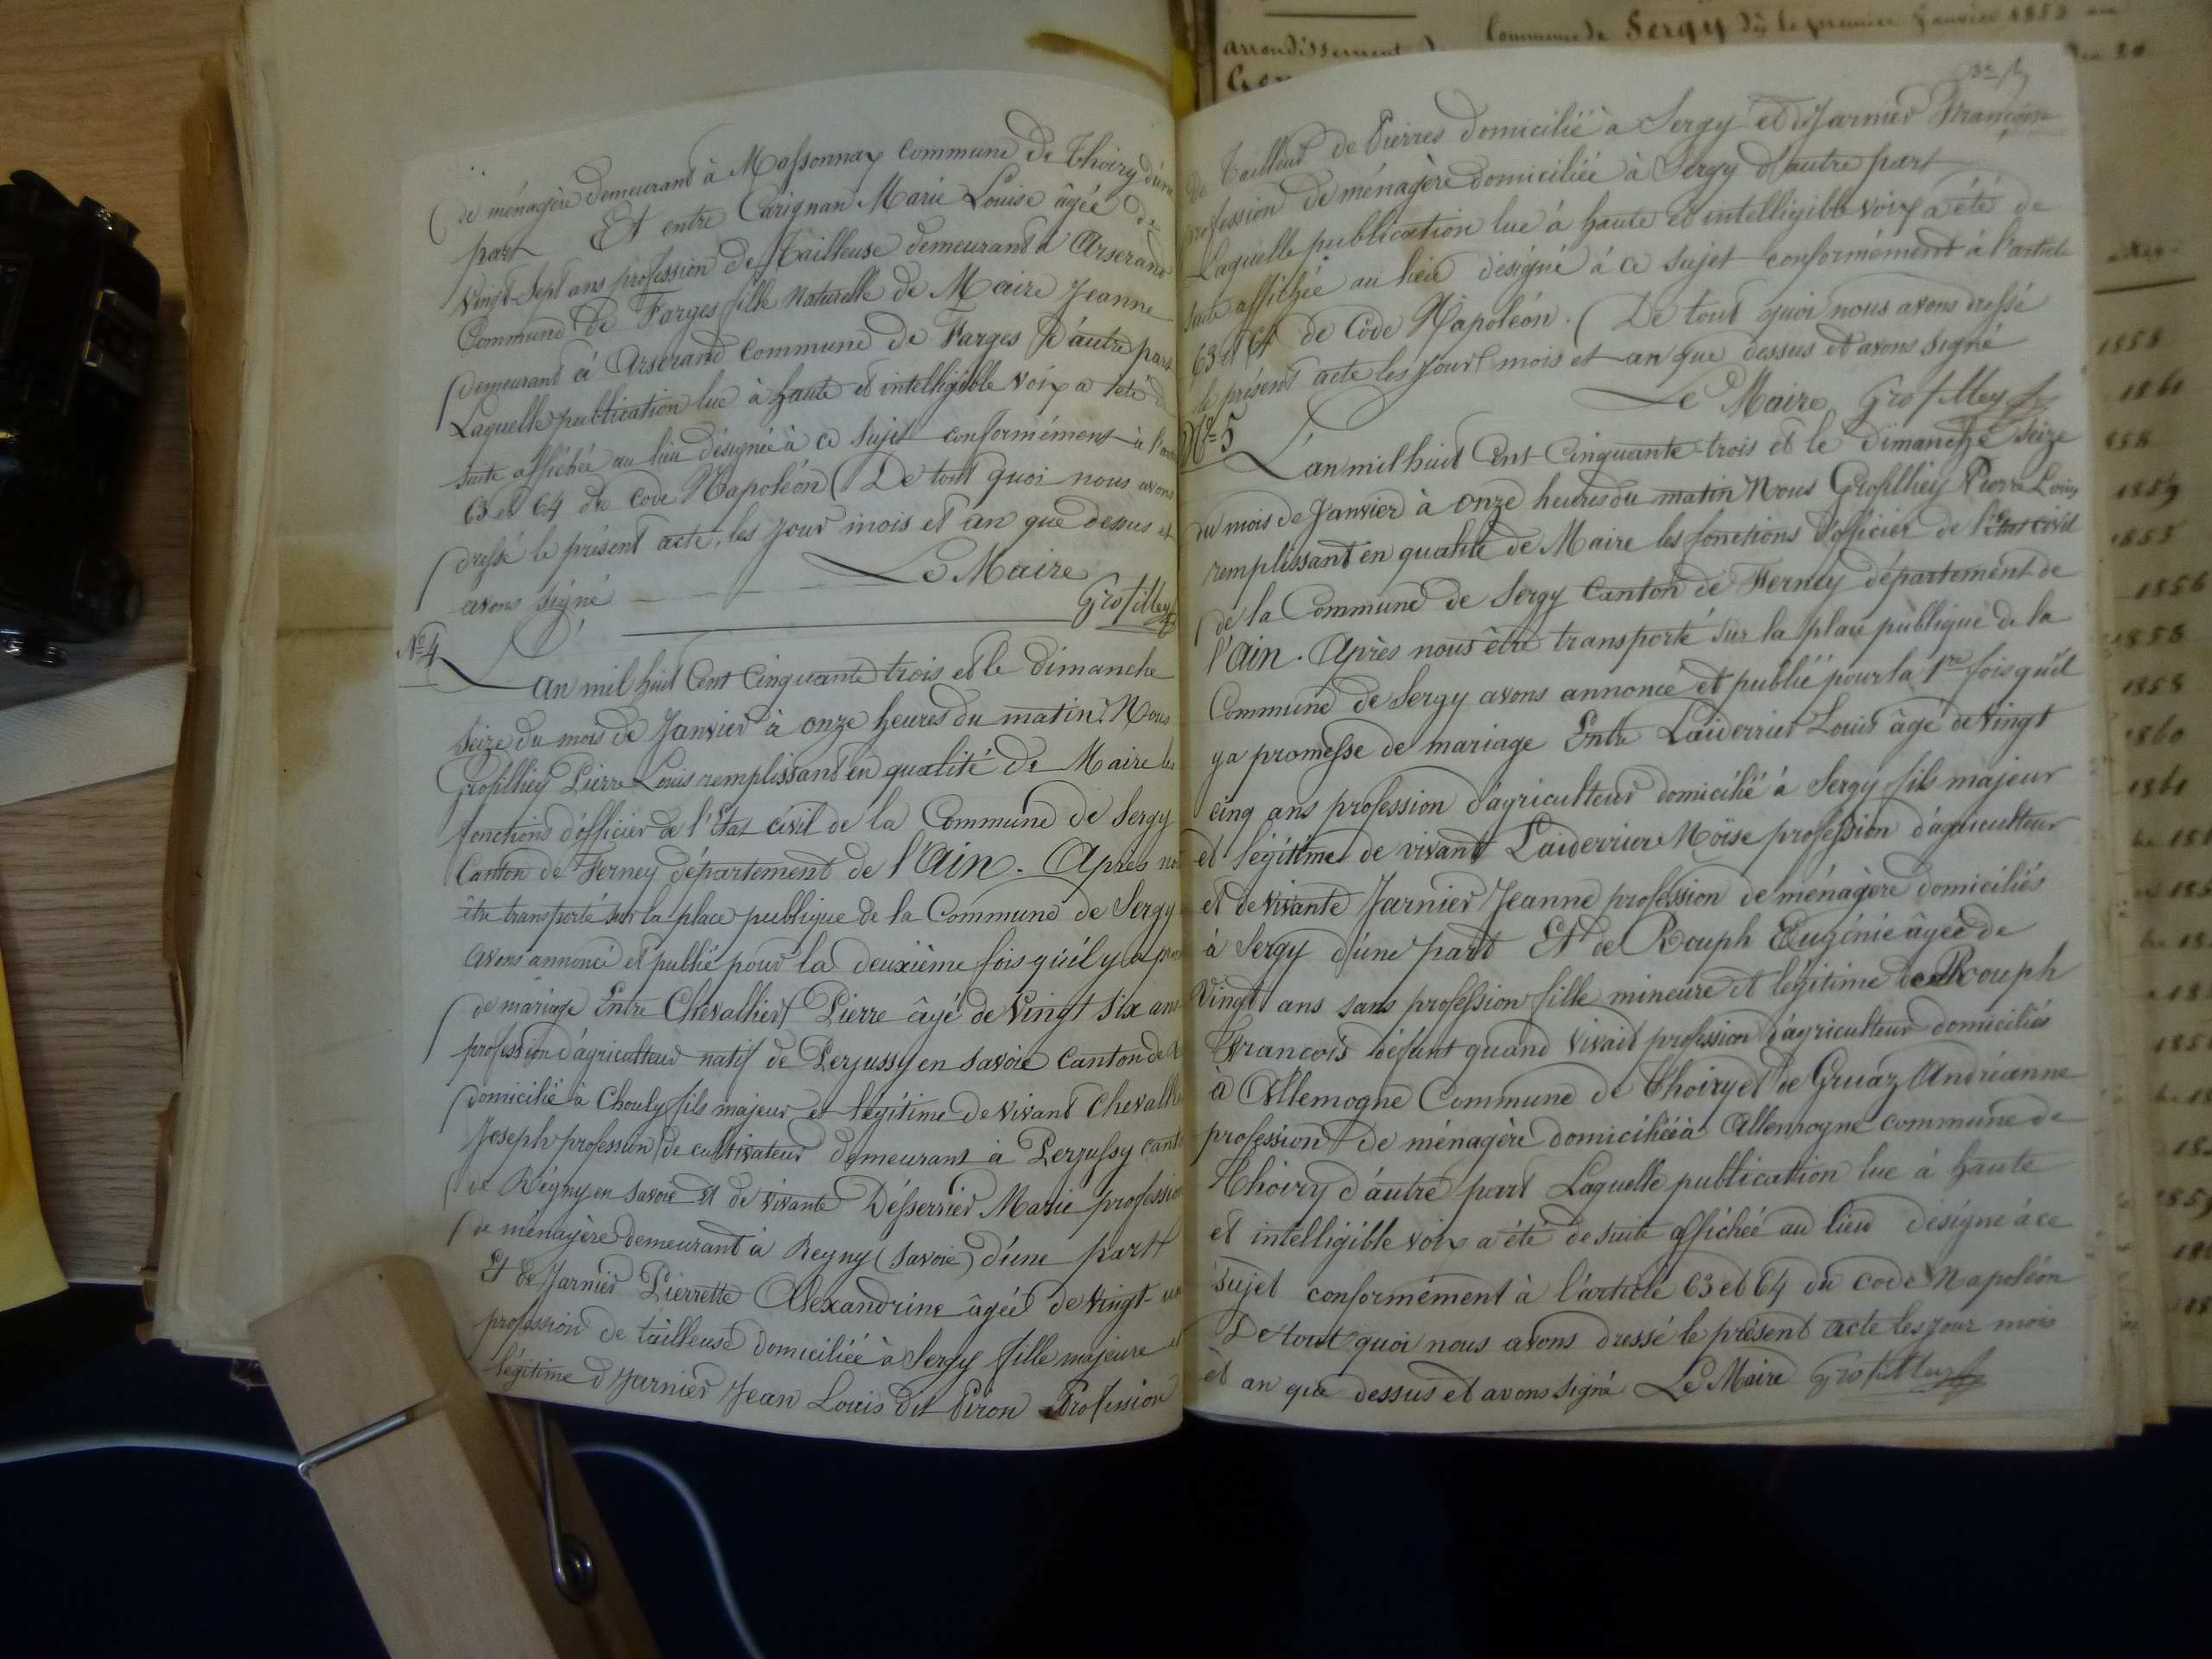 de ménagère demeurant à Massonnax commune de Thoiry d'une
part Et entre Carignan Marie Louise âgée de
vingt-sept ans profession de Tailleuse demeurant à Arserand
Commune de Farges fille naturelle de Maire Jeanne
demeurant à Arserand commune de Farges d'autre part
Laquelle publication lue à haute et intelligible voix a été de
suite affichée au lieu désignée à ce sujet conformément à l'article
63 et 64 du code Napoléon De tout quoi nous avons
dressé le présent acte, les jour mois et an que dessus et
avons signé
Le Maire
Grosfilley
N° 4
L'an mil huit Cent Cinquante trois et le dimanche
seize du mois de Janvier à onze heures du matin. Nous
Grosfilliey Pierre Louis remplissant en qualité de Maire les
fonctions d'officier de l'Etat civil de la Commune de Sergy
Canton de Ferney département de l'Ain. Après nous
être transporté sur la place publique de la Commune de Sergy
avons annoncé et publié pour la deuxième fois qu'il y a
de mariage Entre Chevallier Pierre âgé de Vingt six ans
profession d'agriculteur natif de Perjussy en savoie canton de
domicilié à Chouly fils majeur et légitime de vivant Chevallier
Joseph profession de cultivateur demeurant à Perjussy canton
de Régny en savoie et de vivante Désserrier Marie profession
de ménagère demeurant à Reyny (savoie) d'une part
Et de Jarnier Pierrette Alexandrine âgée de vingt un
profession de tailleuse domiciliée à Sergy fille majeure et
légitime d Jarnier Jean Louis dit Piron Profession
de Tailleur de Pierres domicilié à Sergy et de Jarnier Françoise
profession de ménagère domiciliée à Sergy d'autre part
Laquelle publication lue à haute et intelligible voix a été de
suite affichée au lieu désigné à ce sujet conformément à l'article
63 et 64 de Code Napoléon. De tout quoi nous avons dressé
le présent acte les jour mois et an que dessus et avons signé
Le Maire Grosfilley
N° 5
L'an mil huit Cent Cinquante-trois et le dimanche seize
du mois de Janvier à onze heures du matin Nous Grosfilliey Pierre Louis
remplissant en qualité de Maire les fonctions d'officier de l'Etat civil
de la Commune de Sergy Canton de Ferney département de
l'Ain. Après nous être transporté sur la place publique de la
Commune de Sergy avons annoncé et publié pour la 1re fois qu'il
ya promesse de mariage Entre Laiderrier Louis âgé de vingt
cinq ans profession d'agriculteur domicilié à Sergy fils majeur
et légitime de vivant Laiderrier Moïse profession d'agriculteur
et de vivante Jarnier Jeanne profession de ménagère domiciliés
à Sergy d'une part Et de Rouph Eugénie âgée de
Vingt ans sans profession fille mineure et légitime de Rouph
François défunt quand vivait profession d'agriculteur domiciliés
à Allemogne Commune de Thoiry et de Gruaz Andréanne
profession de ménagère domiciliée à Allemogne commune de
Thoiry d'autre part Laquelle publication lue à haute
et intelligible voix a été de suite affichée au lieu désigné à ce
sujet conformément à l'article 63 et 64 du code Napoléon
De tout quoi nous avons dressé le présent acte les jour mois
et an que dessus et avons signé Le Maire Grosfilley
arrondissement
Commune de Sergy dès le premier Janvier 1853
1853
1861
1859
1855
1856
1858
1858
1860
1861